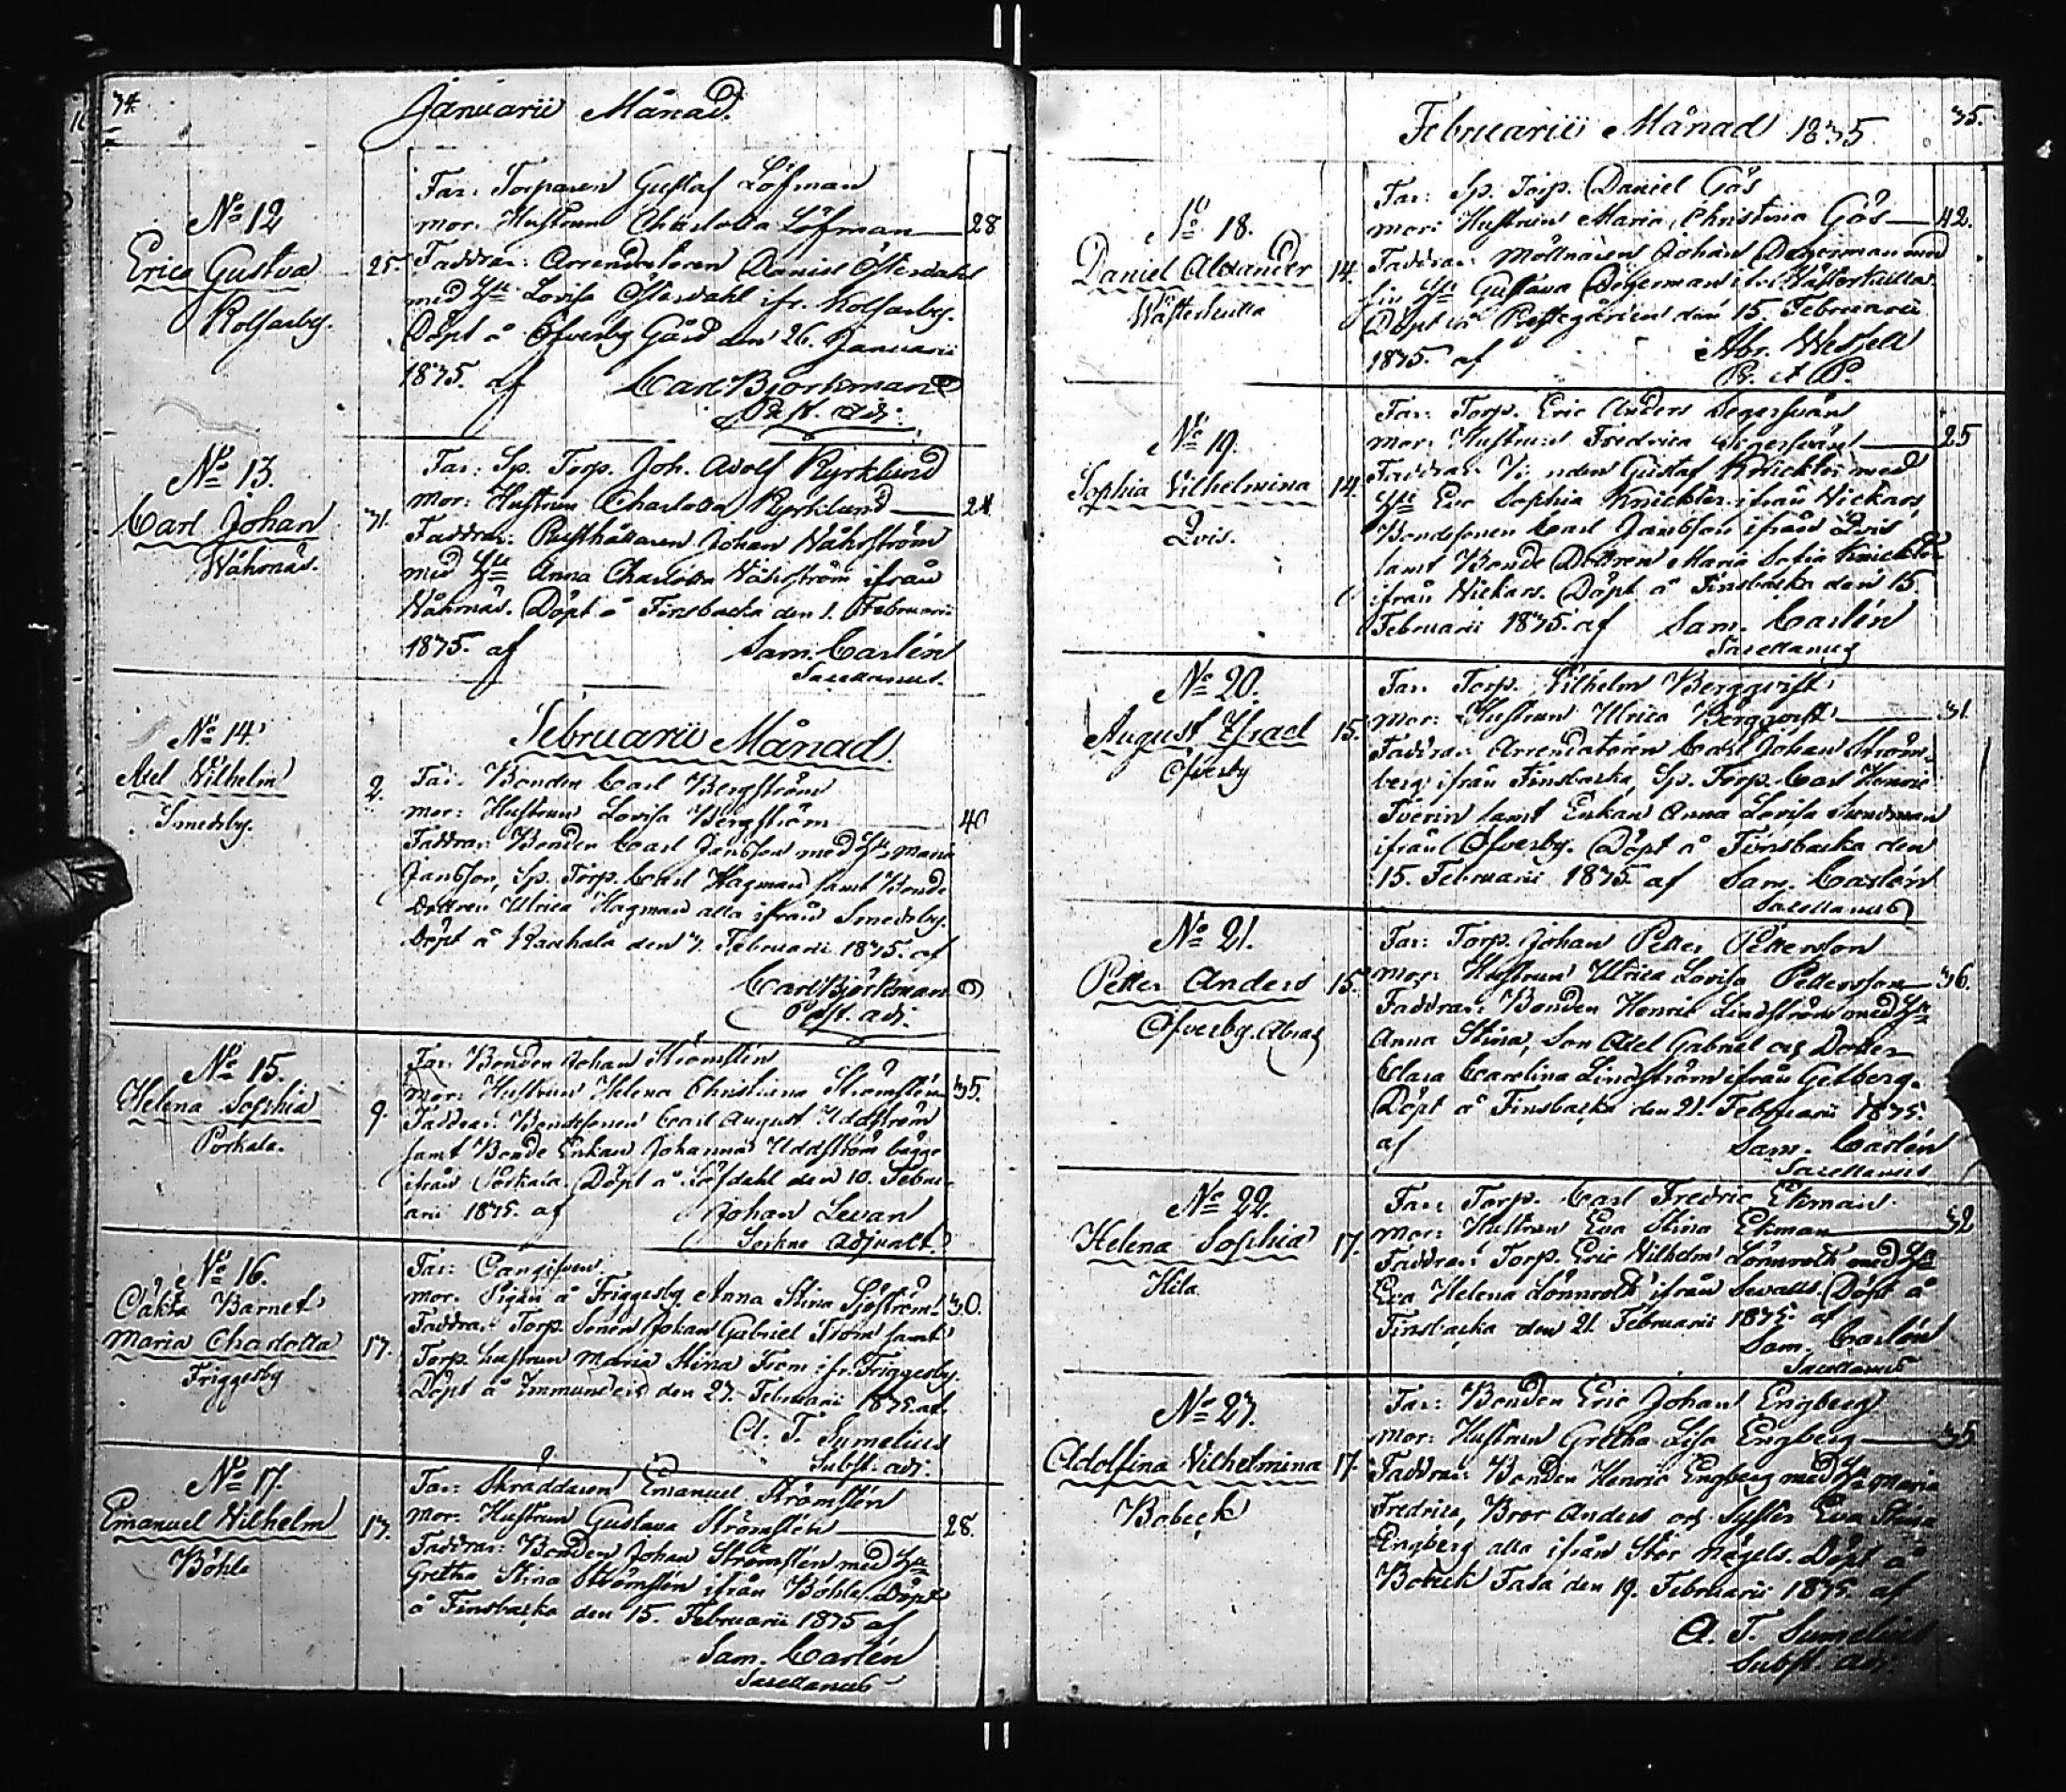 34.
Januarii Månad.
No 12
Erica Gustva
Kolsarby.
25.
Far: Torparen Gustaf Löfman
mor. Hustrun Charlotta Löfman — 28
Faddrar: Arrendatoren Daniel Österdahl
med Hu Lovisa Österdahl ifr. Kolsarby.
Döpt å Öfverby Gård den 26. Januarii
1835. af Carl Björkman
Past. adj.
No 13.
Carl Johan
Wåhrnäs.
31.
Far: Sp. Torp. Joh. Adolf Kyrklund
mor: Hustrun Charlotta Kyrklund — 24
Faddrar: Rusthållaren Johan Wåhrström
med Hu Anna Charlotta Wåhrström ifrån
Wåhrnäs. Döpt å Finsbacka den 1. Februarii
1835. af Sam. Carlén
Sacellanus.
Februarii Månad.
No 14.
Axel Vilhelm
Smedsby.
2.
Far. Bonden Carl Bergström
mor: Hustrun Lovisa Bergström 40
Faddrar: Bonden Carl Jansson med Hu Maria
Jansson, Sp. Torp. Carl Hagman samt Bonde
Dottren Ulrica Hagman alla ifrån Smedsby.
Döpt å den 7. Februarii 1835. af
Carl Björkman
Past. adj.
No 15.
Helena Sophia
Porkala.
9.
Far: Bonden Johan Strömsten
mor: Hustrun Helena Christina Strömsten 35.
Faddrar: Bondesonen Carl August Uddström
samt Bonde Enkan Johanna Uddström bägge
ifrån Porkala. Döpt å Löfdahl den 10. Febru-
arii 1835. af Johan Levan
Sockne Adjunct.
No 16.
Oäkta Barnet
Maria Charlotta
Friggesby
17.
Far: Oangifven.
mor. Pigan å Friggesby Anna Stina Sjöström. 30.
Faddrar: Torp. Sonen Johan Gabriel From samt
Torp. hustrun Maria Stina From ifr. Friggesby.
Döpt å den 27. Februarii 1835. af
A. T. Sumelius
Subst. adj.
No 17.
Emanuel Wilhelm
Böhle
13.
Far: Skräddaren Emanuel Strömsten
mor. Hustrun Gustava Strömsten — 28.
Faddrar: Bonden Johan Strömsten med Hu
Gretha Stina Strömsten ifrån Böhle. Döpt
å Finsbacka den 15. Februarii 1835 af
Sam. Carlén
Sacellanus
Februarii Månad 1835.
35.
No 18.
Daniel Alexander
Wästerkulla
14.
Far: Sp. Torp. Daniel Gös
mor: Hustrun Maria Christina Gös — 42.
Faddrar: Mölnaren Johan Degerman med
sin Hu Gustava Degerman ifr. Wästerkulla.
Döpt å Prestegården den 15. Februarii
1835. af Abr. Weffell
P. et P.
No 19.
Sophia Vilhelmina
Qvis.
14.
Far: Torp. Eric Anders Segersvärd
mor: Hustrun Fredrica Segersvärd — 25
Faddrar. Gustaf Knichter med
Hu Eva Sophia Knichter ifrån Wickars,
Bondesonen Carl Jansson ifrån Qvis
samt Bonde Dottren Maria Sofia Knichter
ifrån Wickars. Döpt å Finsbacka den 15.
Februarii 1835. af Sam. Carlén
Sacellanus
No 20.
August Israel
Öfverby
15.
Far. Torp. Vilhelm Bergqvist
mor: Hustrun Ulrica Bergqvist — 31.
Faddrar: Arrendatoren Carl Johan Ström-
berg ifrån Finsbacka, Sp. Torp. Carl Henric
samt Enkan Anna Lovisa Sundman
ifrån Öfverby. Döpt å Finsbacka den
15. Februarii 1835. af Sam. Carlén
Sacellanus
No 21.
Petter Anders
Öfverby.
15.
Far: Torp. Johan Petter Petterson
Mor: Hustrun Ulrica Lovisa Pettersson — 36.
Faddrar: Bonden Henric Lindström med Hu
Anna Stina, Son Axel Gabriel och Dotter
Clara Carolina Lindström ifrån Getberg.
Döpt å Finsbacka den 21. Februarii 1835.
af Sam. Carlén
Sacellanus
No 22.
Helena Sophia
Hila
17.
Far: Torp. Carl Fredric Ekman.
mor: Hustrun Eva Stina Ekman — 32
Faddrar: Torp. Eric Wilhelm Lönnroth med Hu
Eva Helena Lönnroth ifrån Sevalls. Döpt å
Finsbacka den 21. Februarii 1835. af
Sam. Carlén
Sacellanus
No 23.
Adolfina Vilhelmina
Bobeck
17.
Far: Bonden Eric Johan Engberg
Mor: Hustrun Gretha Lisa Engberg — 35
Faddrar: Bonden Henric Engberg med Hu Maria
Fredrica, Bror Anders och Syster Eva Stina
Engberg alla ifrån Stor Nägels. Döpt å
Bobeck den 19. Februarii 1835. af
A. T. Sumelius
Subst. adj.